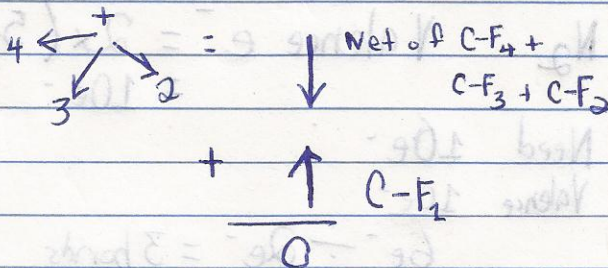 +
4 = Net of C-F₄ +
C-F₃ + C-F₂
3 2
+ C-F₁
0